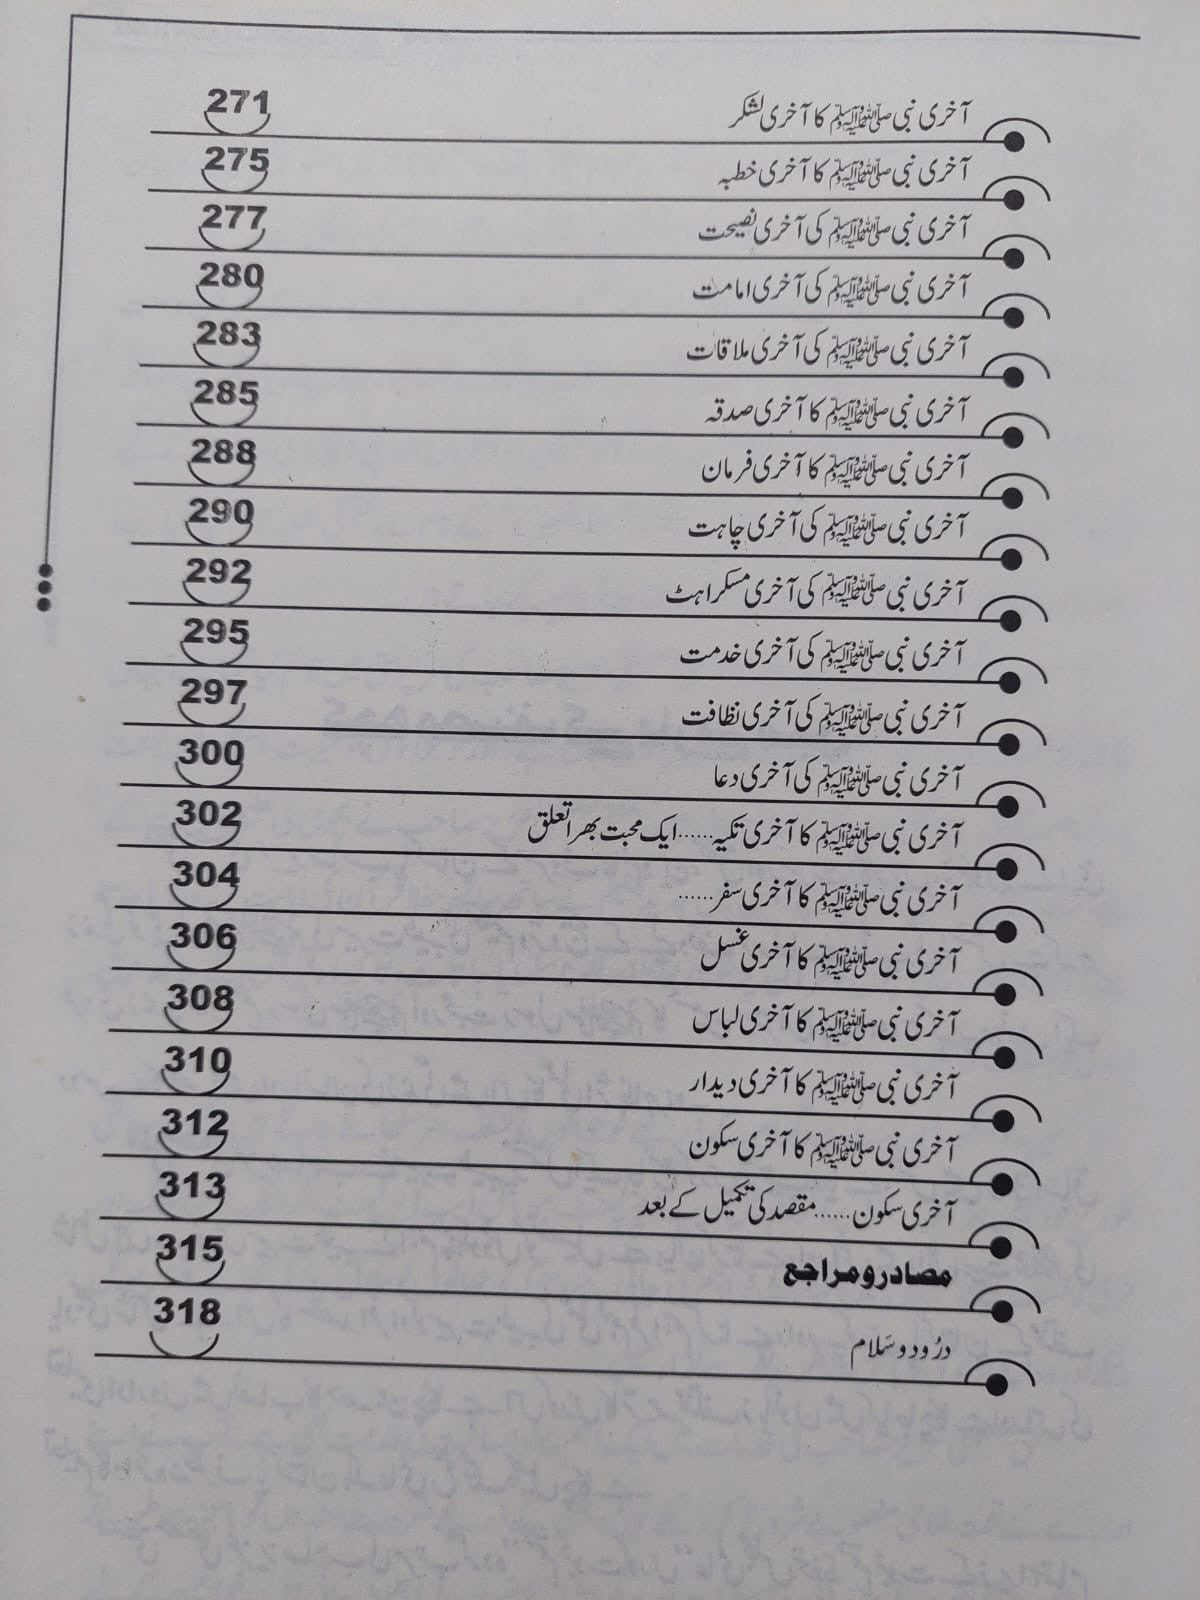 آخری نبی ﷺ کا آخری لشکر 271
آخری نبی ﷺ کا آخری خطبہ 275
آخری نبی ﷺ کی آخری نصیحت 277
آخری نبی ﷺ کی آخری امامت 280
آخری نبی ﷺ کی آخری ملاقات 283
آخری نبی ﷺ کا آخری صدقہ 285
آخری نبی ﷺ کا آخری فرمان 288
آخری نبی ﷺ کی آخری چاہت 290
آخری نبی ﷺ کی آخری مسکراہٹ 292
آخری نبی ﷺ کی آخری خدمت 295
آخری نبی ﷺ کی آخری نظافت 297
آخری نبی ﷺ کی آخری دعا 300
آخری نبی ﷺ کا آخری تکیہ ...... ایک محبت بھرا تعلق 302
آخری نبی ﷺ کا آخری سفر ...... 304
آخری نبی ﷺ کا آخری غسل 306
آخری نبی ﷺ کا آخری لباس 308
آخری نبی ﷺ کا آخری دیدار 310
آخری نبی ﷺ کا آخری سکون 312
آخری سکون ...... مقصد کی تکمیل کے بعد 313
مصادر و مراجع 315
درُود و سَلام 318